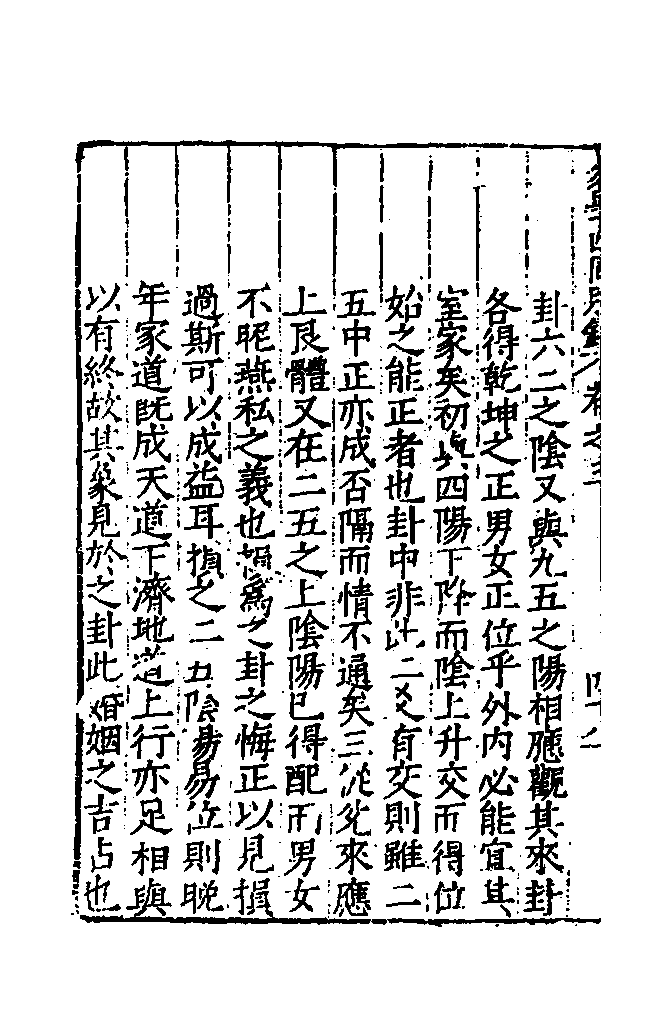 卦六二之陰又與九五之陽相應觀其來卦
各得乾坤之正男女正位乎外內必能宜其
室家矣初與四陽下陞而陰上升交而得位
始之能正者也卦中非此二爻有交則雖二
五中正亦成否隔而情不通矣三從兌來應
上艮體又在二五之上陰陽已得配而男女
不昵燕私之義也損為之卦之悔正以見損
過斯可以成益耳損之二五陰陽易位則晚
年家道既成天道下濟地道上行亦足相與
以有終故其象見於之卦此婚姻之吉占也